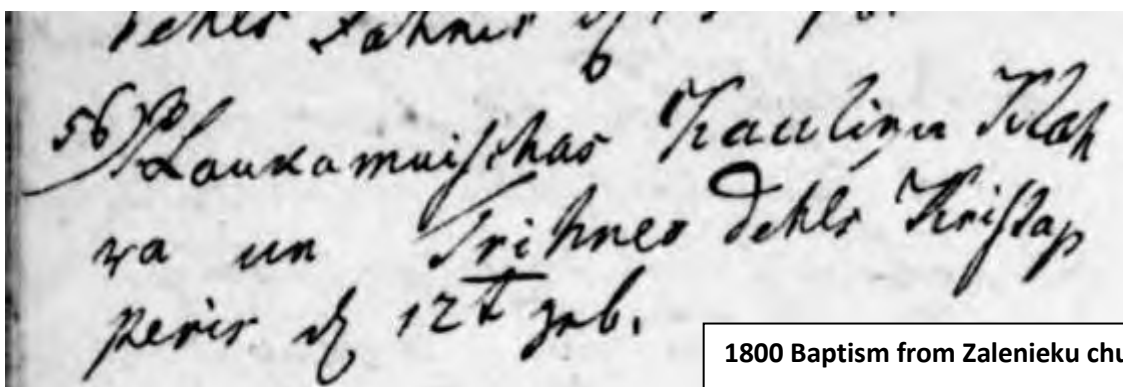 dehls Jahnis
56) Laukamuischas Kauliņu Klah
wa un Trihnes dehls Kristap
peris d 12t geb.
1800 Baptism from Zalenieku chu